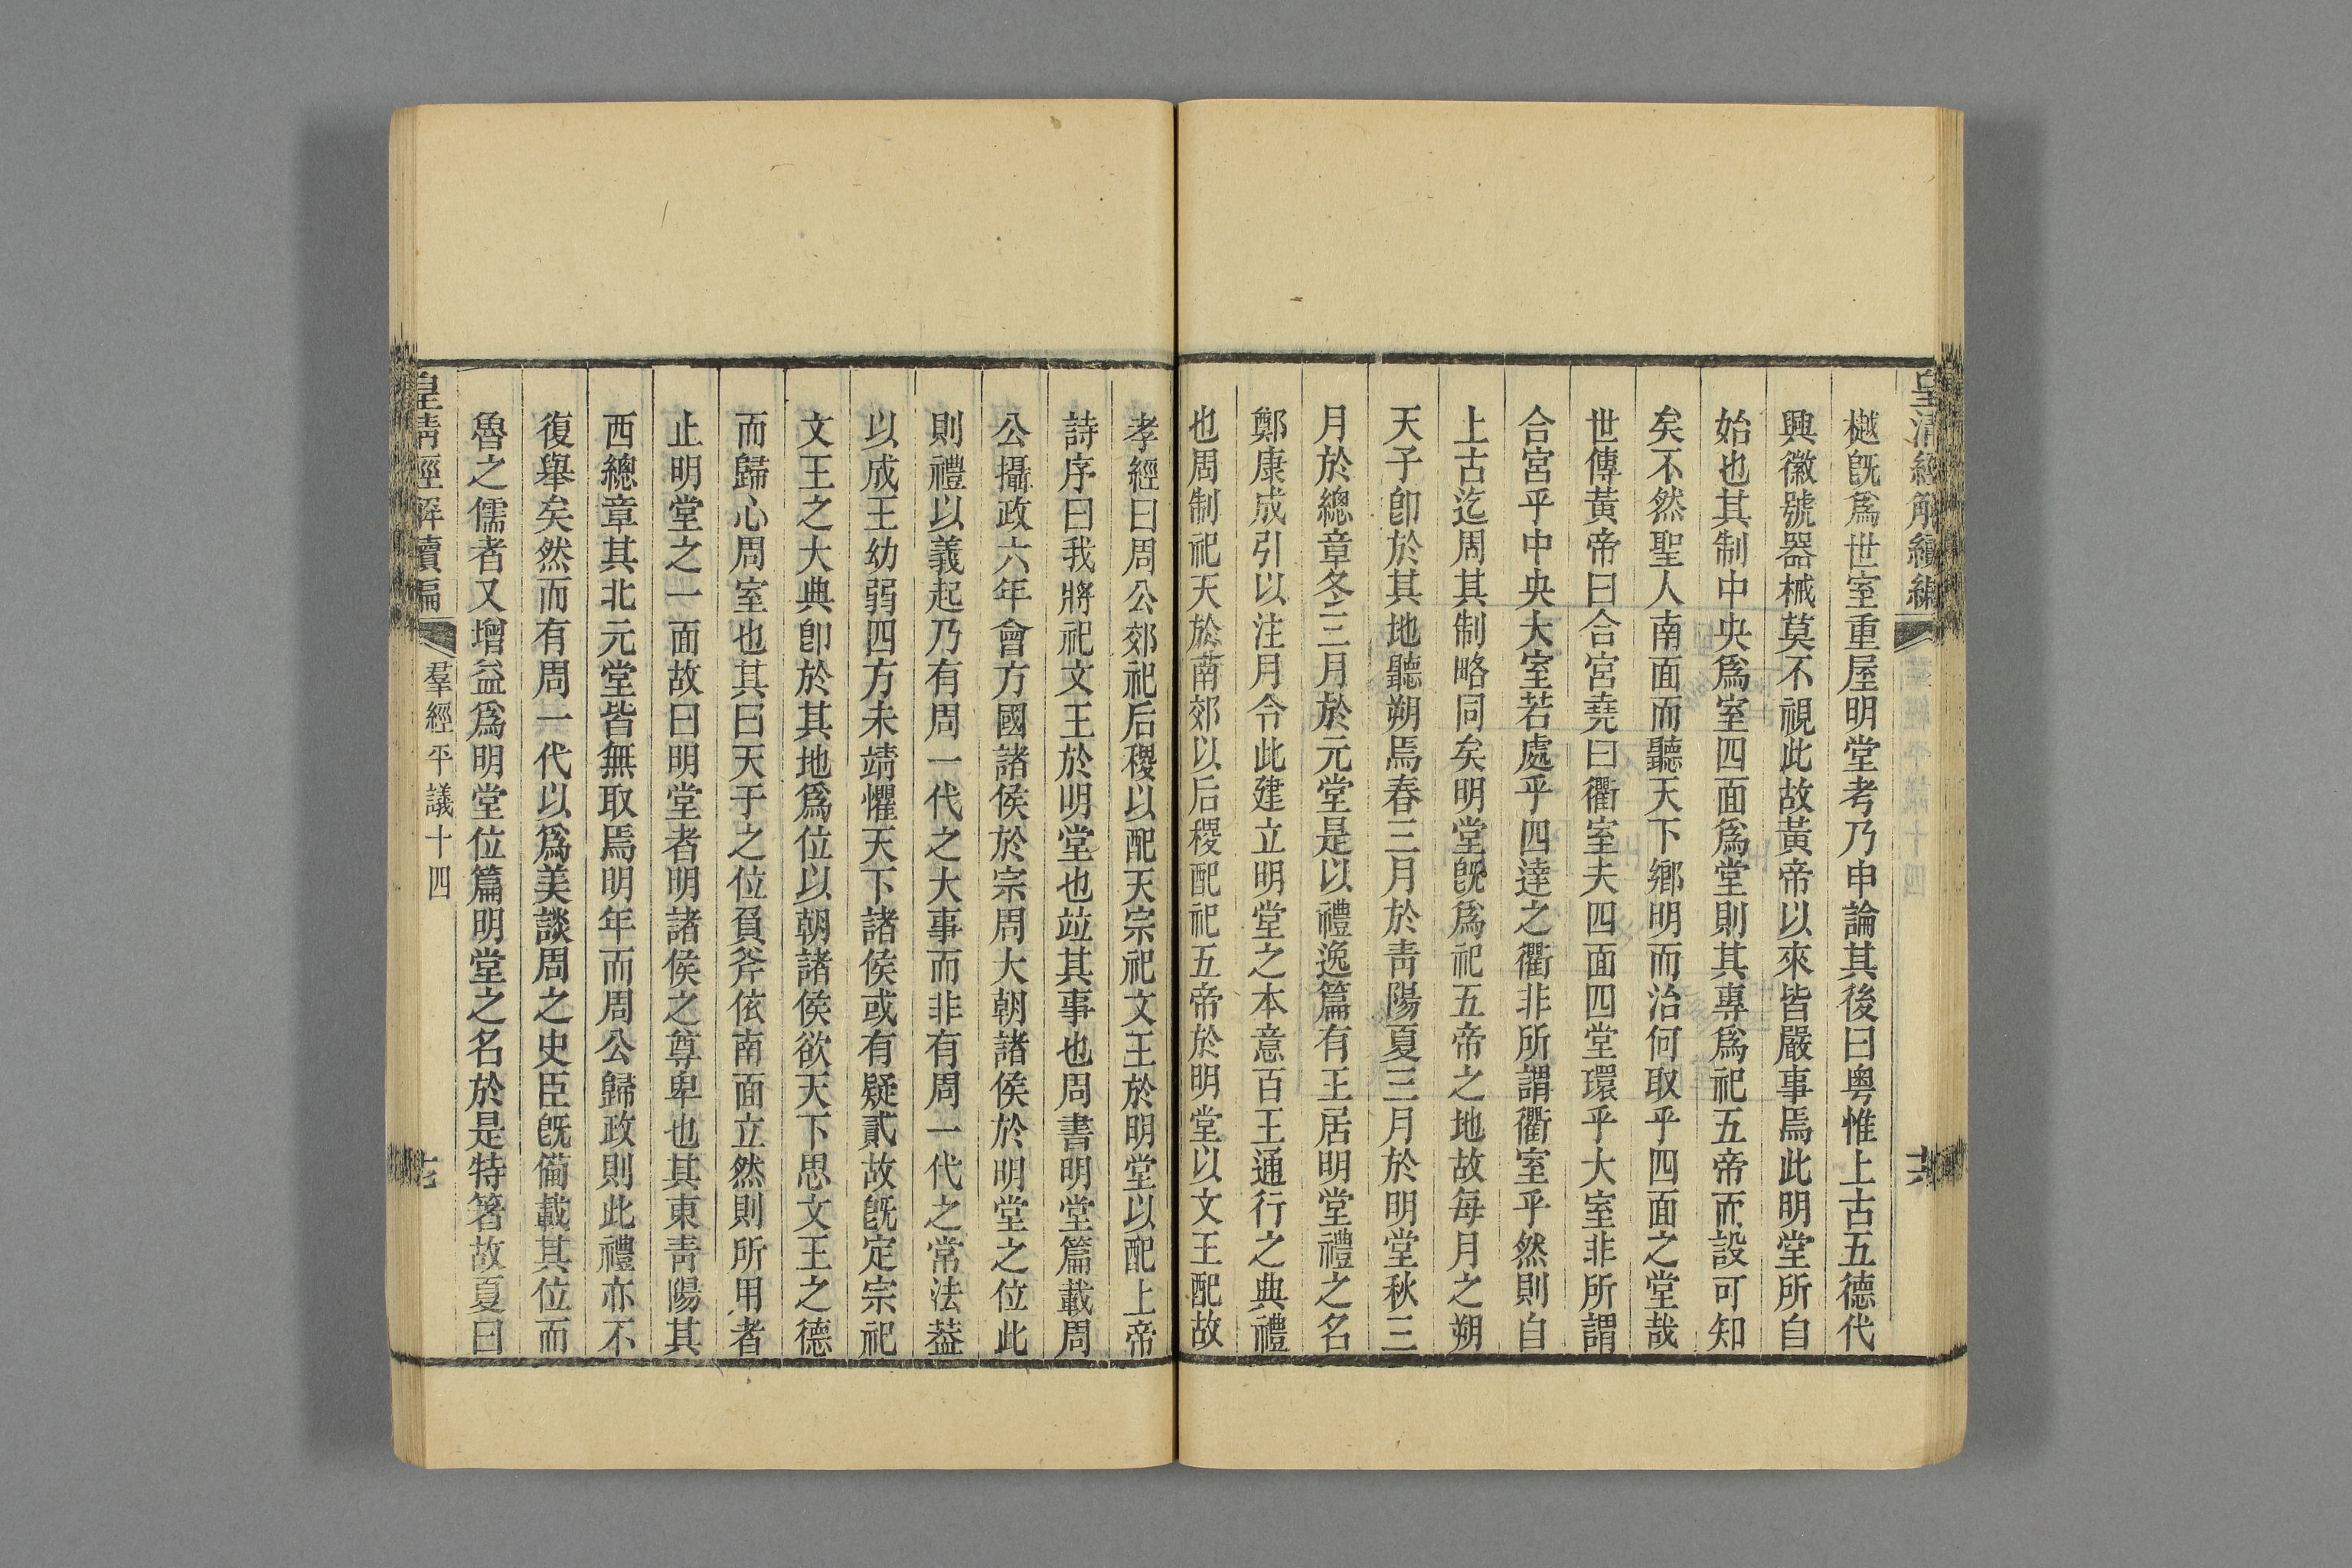 皇清經解續編
樾旣爲世室重屋明堂考乃申論其後曰粵惟上古五德代
興徽號器械莫不視此故黃帝以來皆嚴事焉此明堂所自
始也其制中央爲室四面爲堂則其專爲祀五帝而設可知
矣不然聖人南面而聽天下鄉明而治何取乎四面之堂哉
世傳黃帝曰合宮堯曰衢室夫四面四堂環乎大室非所謂
合宮乎中央大室若處乎四達之衢非所謂衢室乎然則自
上古迄周其制略同矣明堂旣爲祀五帝之地故每月之朔
天子卽於其地聽朔焉春三月於靑陽夏三月於明堂秋三
月於總章冬三月於元堂是以禮逸篇有王居明堂禮之名
鄭康成引以注月令此建立明堂之本意百王通行之典禮
也周制祀天於南郊以后稷配祀五帝於明堂以文王配故
孝經曰周公郊祀后稷以配天宗祀文王於明堂以配上帝
詩序曰我將祀文王於明堂也竝其事也周書明堂篇載周
公攝政六年會方國諸侯於宗周大朝諸侯於明堂之位此
則禮以義起乃有周一代之大事而非有周一代之常法葢
以成王幼弱四方未靖懼天下諸侯或有疑貳故旣定宗祀
文王之大典卽於其地爲位以朝諸侯欲天下思文王之德
而歸心周室也其曰天子之位負斧依南面立然則所用者
止明堂之一面故曰明堂者明諸侯之尊卑也其東靑陽其
西總章其北元堂皆無取焉明年而周公歸政則此禮亦不
復舉矣然而有周一代以爲美談周之史臣旣備載其位而
魯之儒者又增益爲明堂位篇明堂之名於是特箸故夏曰
皇清經解續編
羣經平議十四